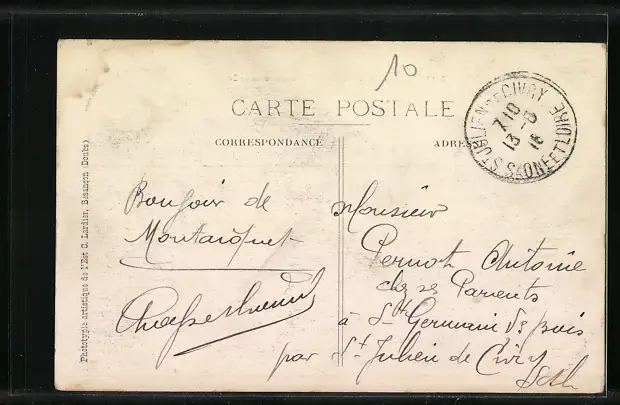 10
CARTE POSTALE
CORRESPONDANCE
ADRES
ST JULIEN-DE CIVRY
7 10
13 -8
16
SAONE ET LOIRE
Bonjour de
Montarquet
Monsieur
Pernot Antoine
chez se Parients
à St Germain de bois
par St Julien de Civry
S & L
Phototypie artistique de l'Est C. Lardier, Besançon (Doubs)